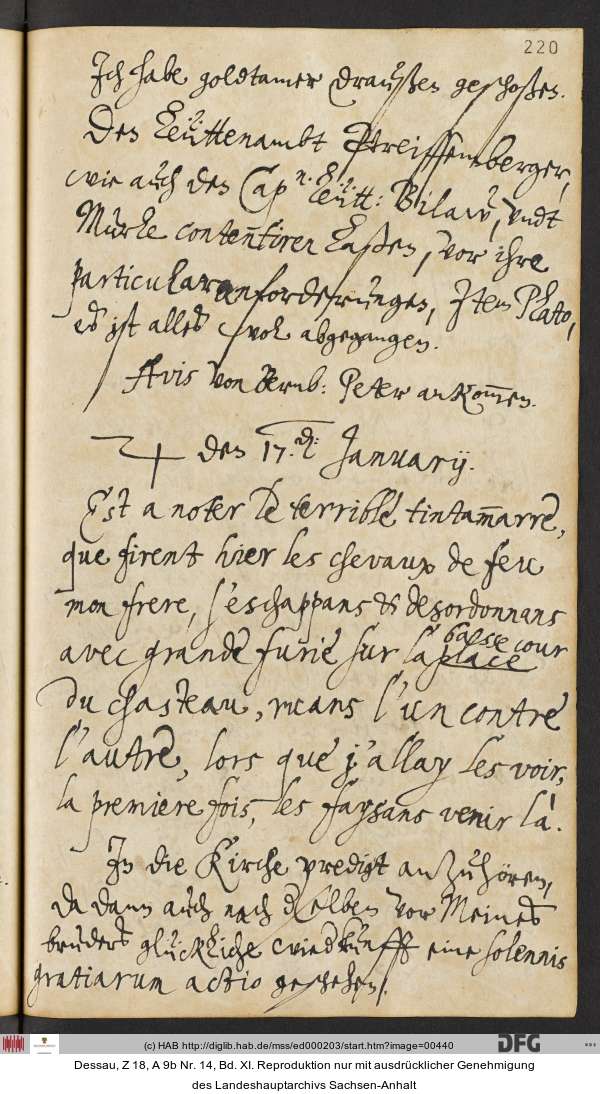 220
Ich habe goldtamer draußen geschoßen.
Den Leüttenambt Streiffemberger,
wie auch den Cap.n Leütt: Bilaw, undt
Murke contentiren laßen, vor ihre
particular anforderungen, Item Plato,
es ist alles wol abgegangen.
Avis von Bernb: Peter ankom̅en.
♃ den 17.den: January.
Est a noter le terrible tintam̅arre,
que firent hier les chevaux de feu
mon frere, s'eschappans & desordonnans
avec grande furie sur la place basse cour
du chasteau, ruans l'un contre
l'autre, lors que j'allay les voir,
la premiere fois, les faysans venir là.
In die Kirche predigt anzuhören,
da dann auch nach derselben vor Meines
bruders glückliche wiedkunfft eine solennis
gratiarum actio geschehen.
(c) HAB http://diglib.hab.de/mss/ed000203/start.htm?image=00440
DFG
Dessau, Z 18, A 9b Nr. 14, Bd. XI. Reproduktion nur mit ausdrücklicher Genehmigung
des Landeshauptarchivs Sachsen-Anhalt